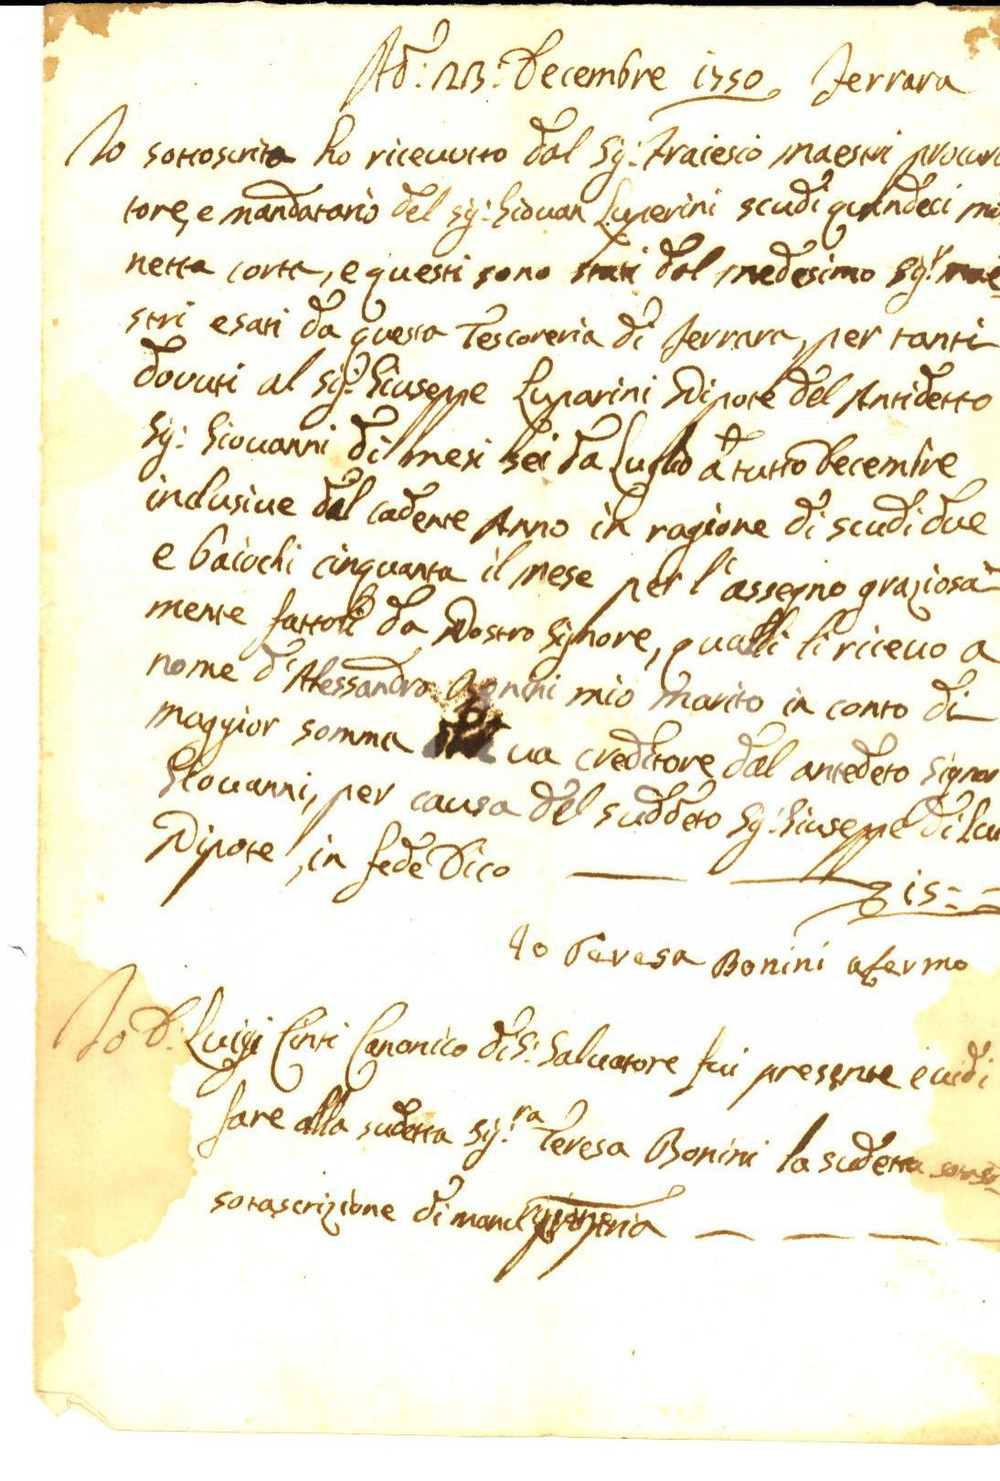 Ad: 23: Decembre 1750 Ferrara
Io sottoscrita ho riceuuto dal Sig: Fracesco Maestri procura
tore, e mandatario del sig: Giouan Luperini scudi quindeci mo
netta corte, e questi sono stati dal medesimo Sig.r Mae
stri esati da questa Tescoreria di Ferrara, per tanti
dovuti al Sig: Giuseppe Luparini Nipote del Antidetto
Sig: Giouanni di mesi sei da Luglio a tutto Decembre
inclusiue dal cadente Anno in ragione di scudi due
e baiochi cinquanta il mese per l'assegno graziosa
mente fattoli da Nostro Signore, qualli li riceuo a
nome di Alessandro Bonini mio Marito in conto di
maggior somma ua creditore dal antedeto Signor
Giouanni, per causa del suddeto Sig: Giuseppe di Lui
Nipote, in fede Dico 15
Io Teresa Bonini afermo
Io D: Luigi Cinti Canonico di S: Saluatore fui presente e uidi
fare alla sudetta Sig:ra Teresa Bonini la sudetta
sotascrizione di mano propria